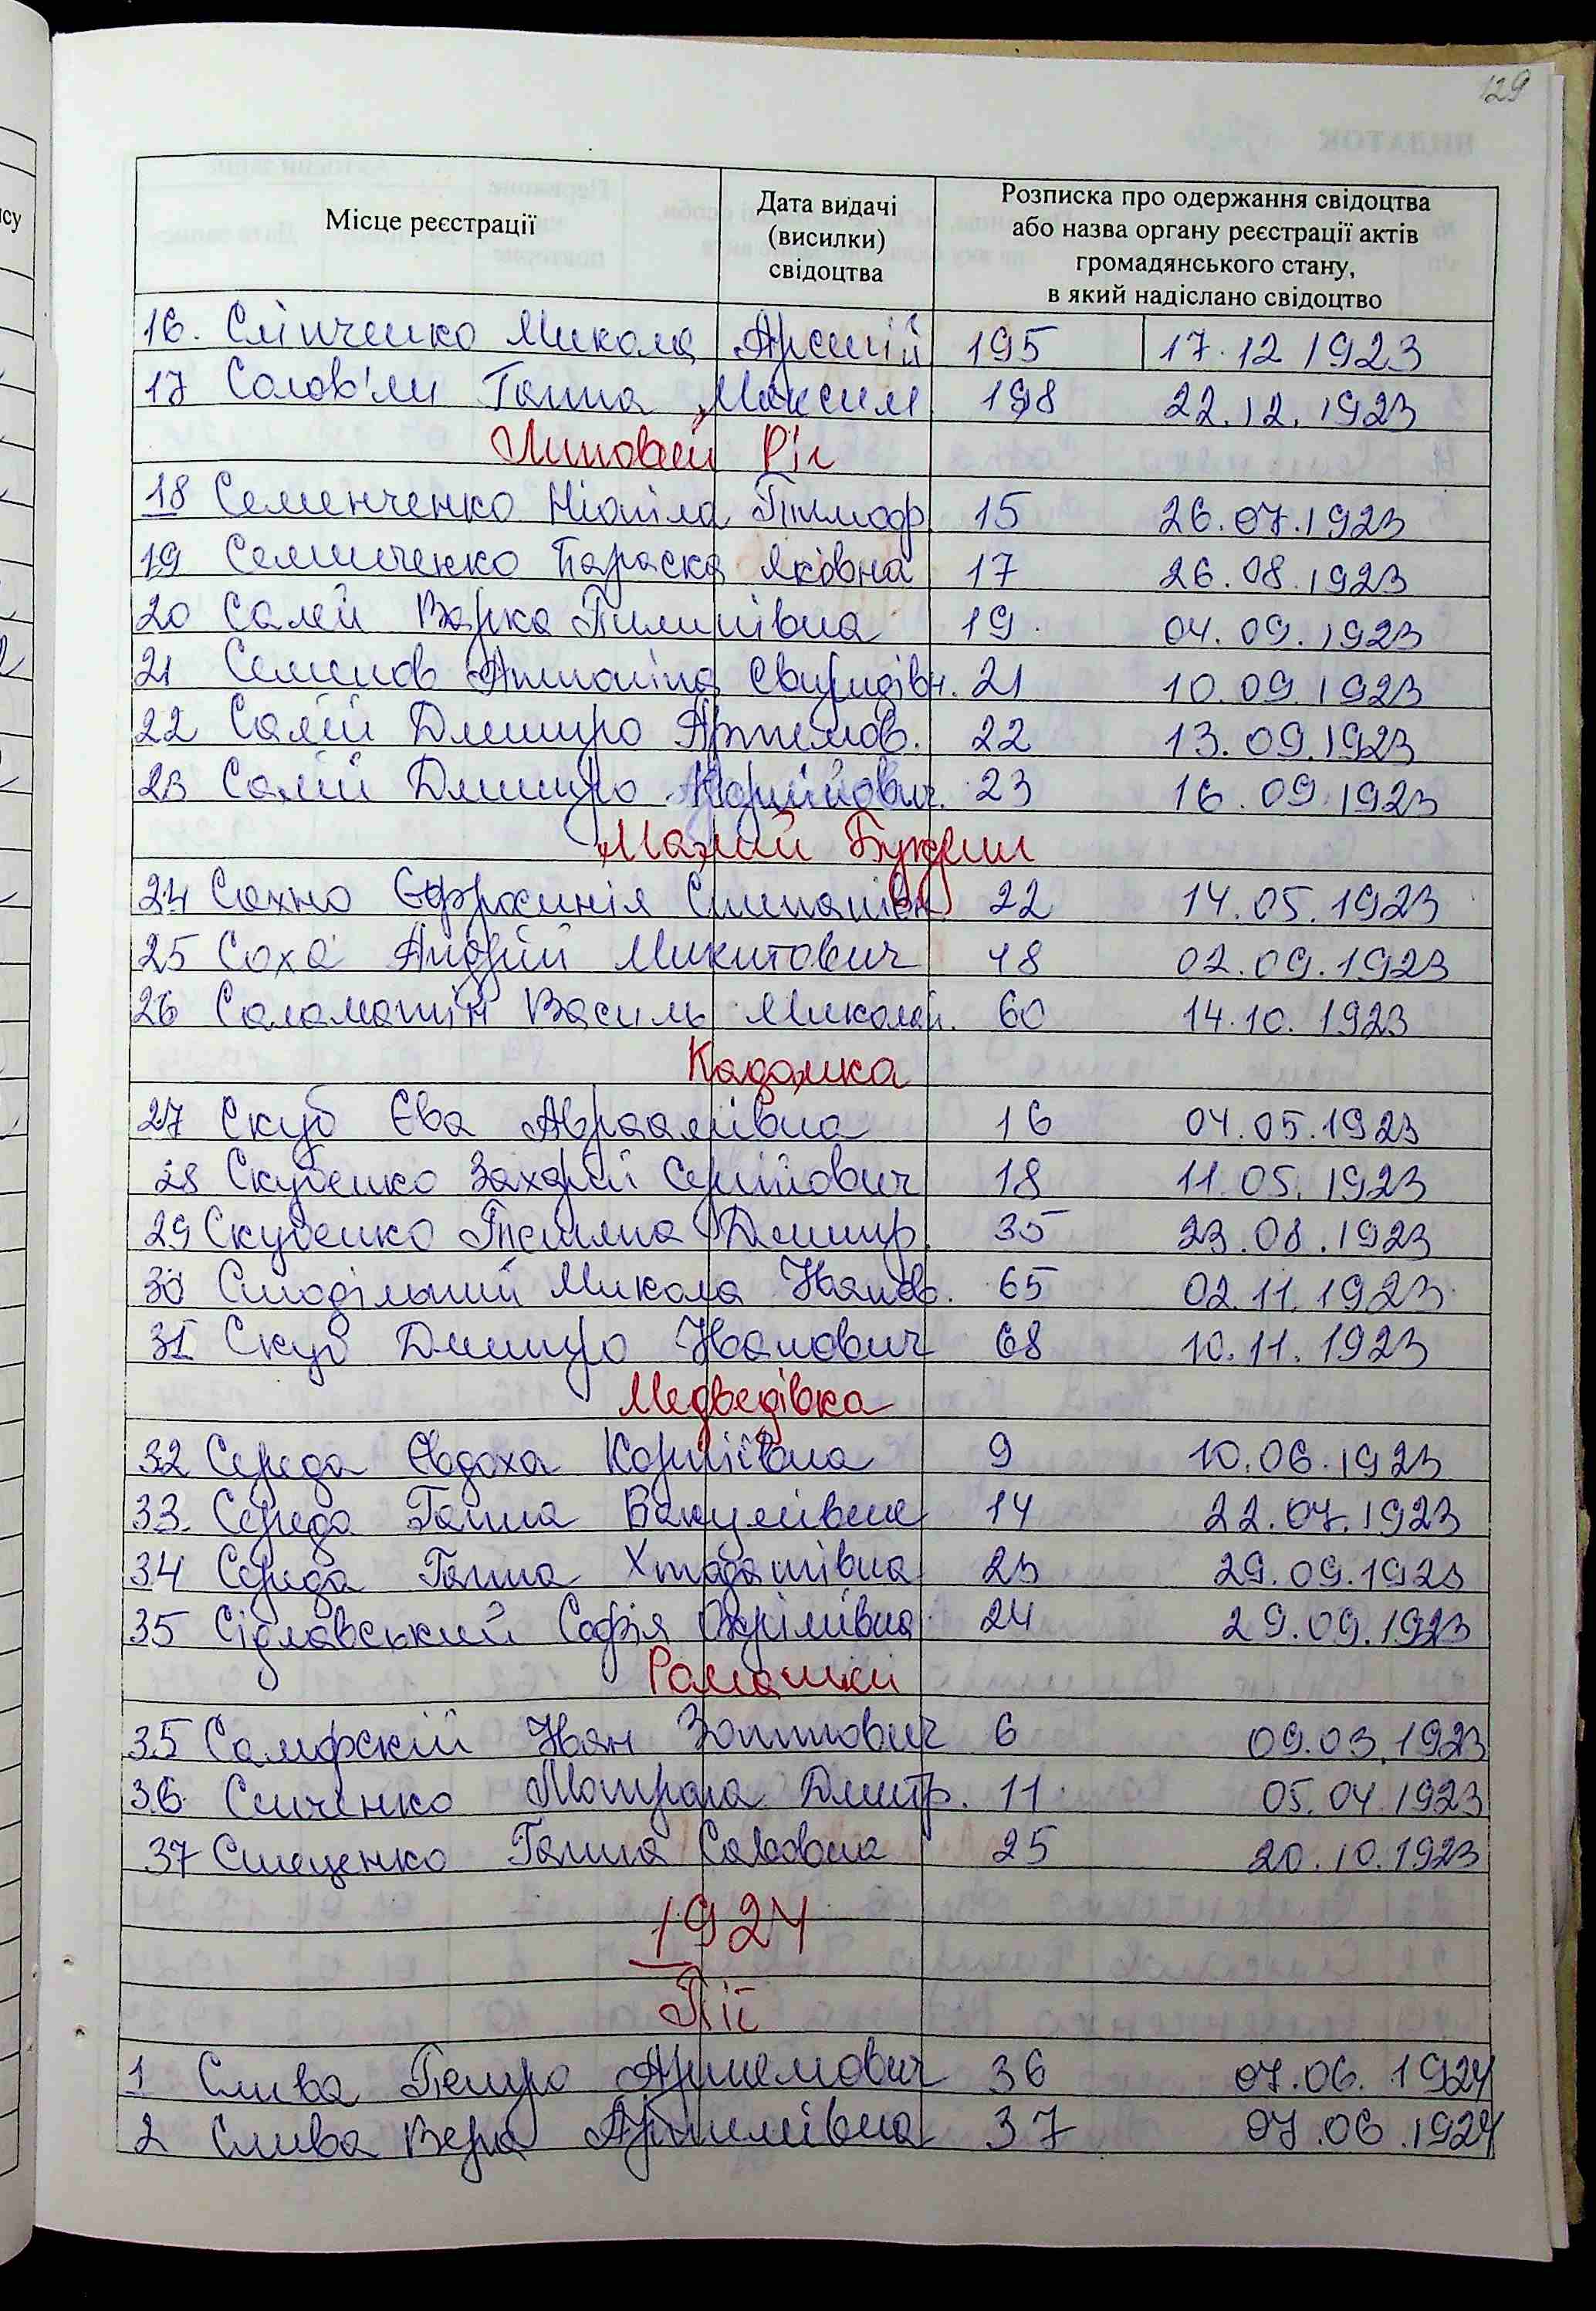 129
Місце реєстрації
Дата видачі
(висилки)
свідоцтва
Розписка про одержання свідоцтва
або назва органу реєстрації актів
громадянського стану,
в який надіслано свідоцтво
16. Сліпченко Микола Арсеній 195 17.12 1923
17 Солов'ян Ганна Максим 198 22.12.1923
Липовий Ріг
18 Семенченко Ніоніла Тимоф 15 26.07.1923
19 Семинченко Параска Яківна 17 26.08.1923
20 Салій Варка Пилипівна 19 04.09.1923
21 Семенов Антоніна Свиридівн. 21 10.09.1923
22 Салій Дмитро Артемов. 22 13.09.1923
23 Салій Дмитро Юрійович. 23 16.09.1923
Малий Букрин
24 Сахно Єфросинія Степанівн 22 14.05.1923
25 Соха Андрій Микитович 48 02.09.1923
26 Саламатін Василь Миколай. 60 14.10.1923
Кадомка
27 Скуб Єва Авраамівна 16 04.05.1923
28 Скубенко Захарій Сергійович 18 11.05.1923
29 Скубенко Тетяна Дмитр 35 23.08.1923
30 Сподільний Микола Іванов. 65 02.11.1923
31 Скуб Дмитро Іванович 68 10.11.1923
Медведівка
32 Середа Євдоха Корніївна 9 10.06.1923
33. Середа Ганна Вакулівна 14 22.07.1923
34 Середа Ганна 23 29.09.1923
35 Сідлавський Софія Охрімівна 24 29.09.1923
Ромашки
35 Самфскій Іван Зотович 6 09.03.1923
36 Сиченко Мотрона Дмитр. 11 05.04.1923
37 Стеценко Ганна Савовна 25 20.10.1923
1924
Пії
1 Слива Петро Артемович 36 07.06.1924
2 Слива Вера Артемівна 37 07.06.1924